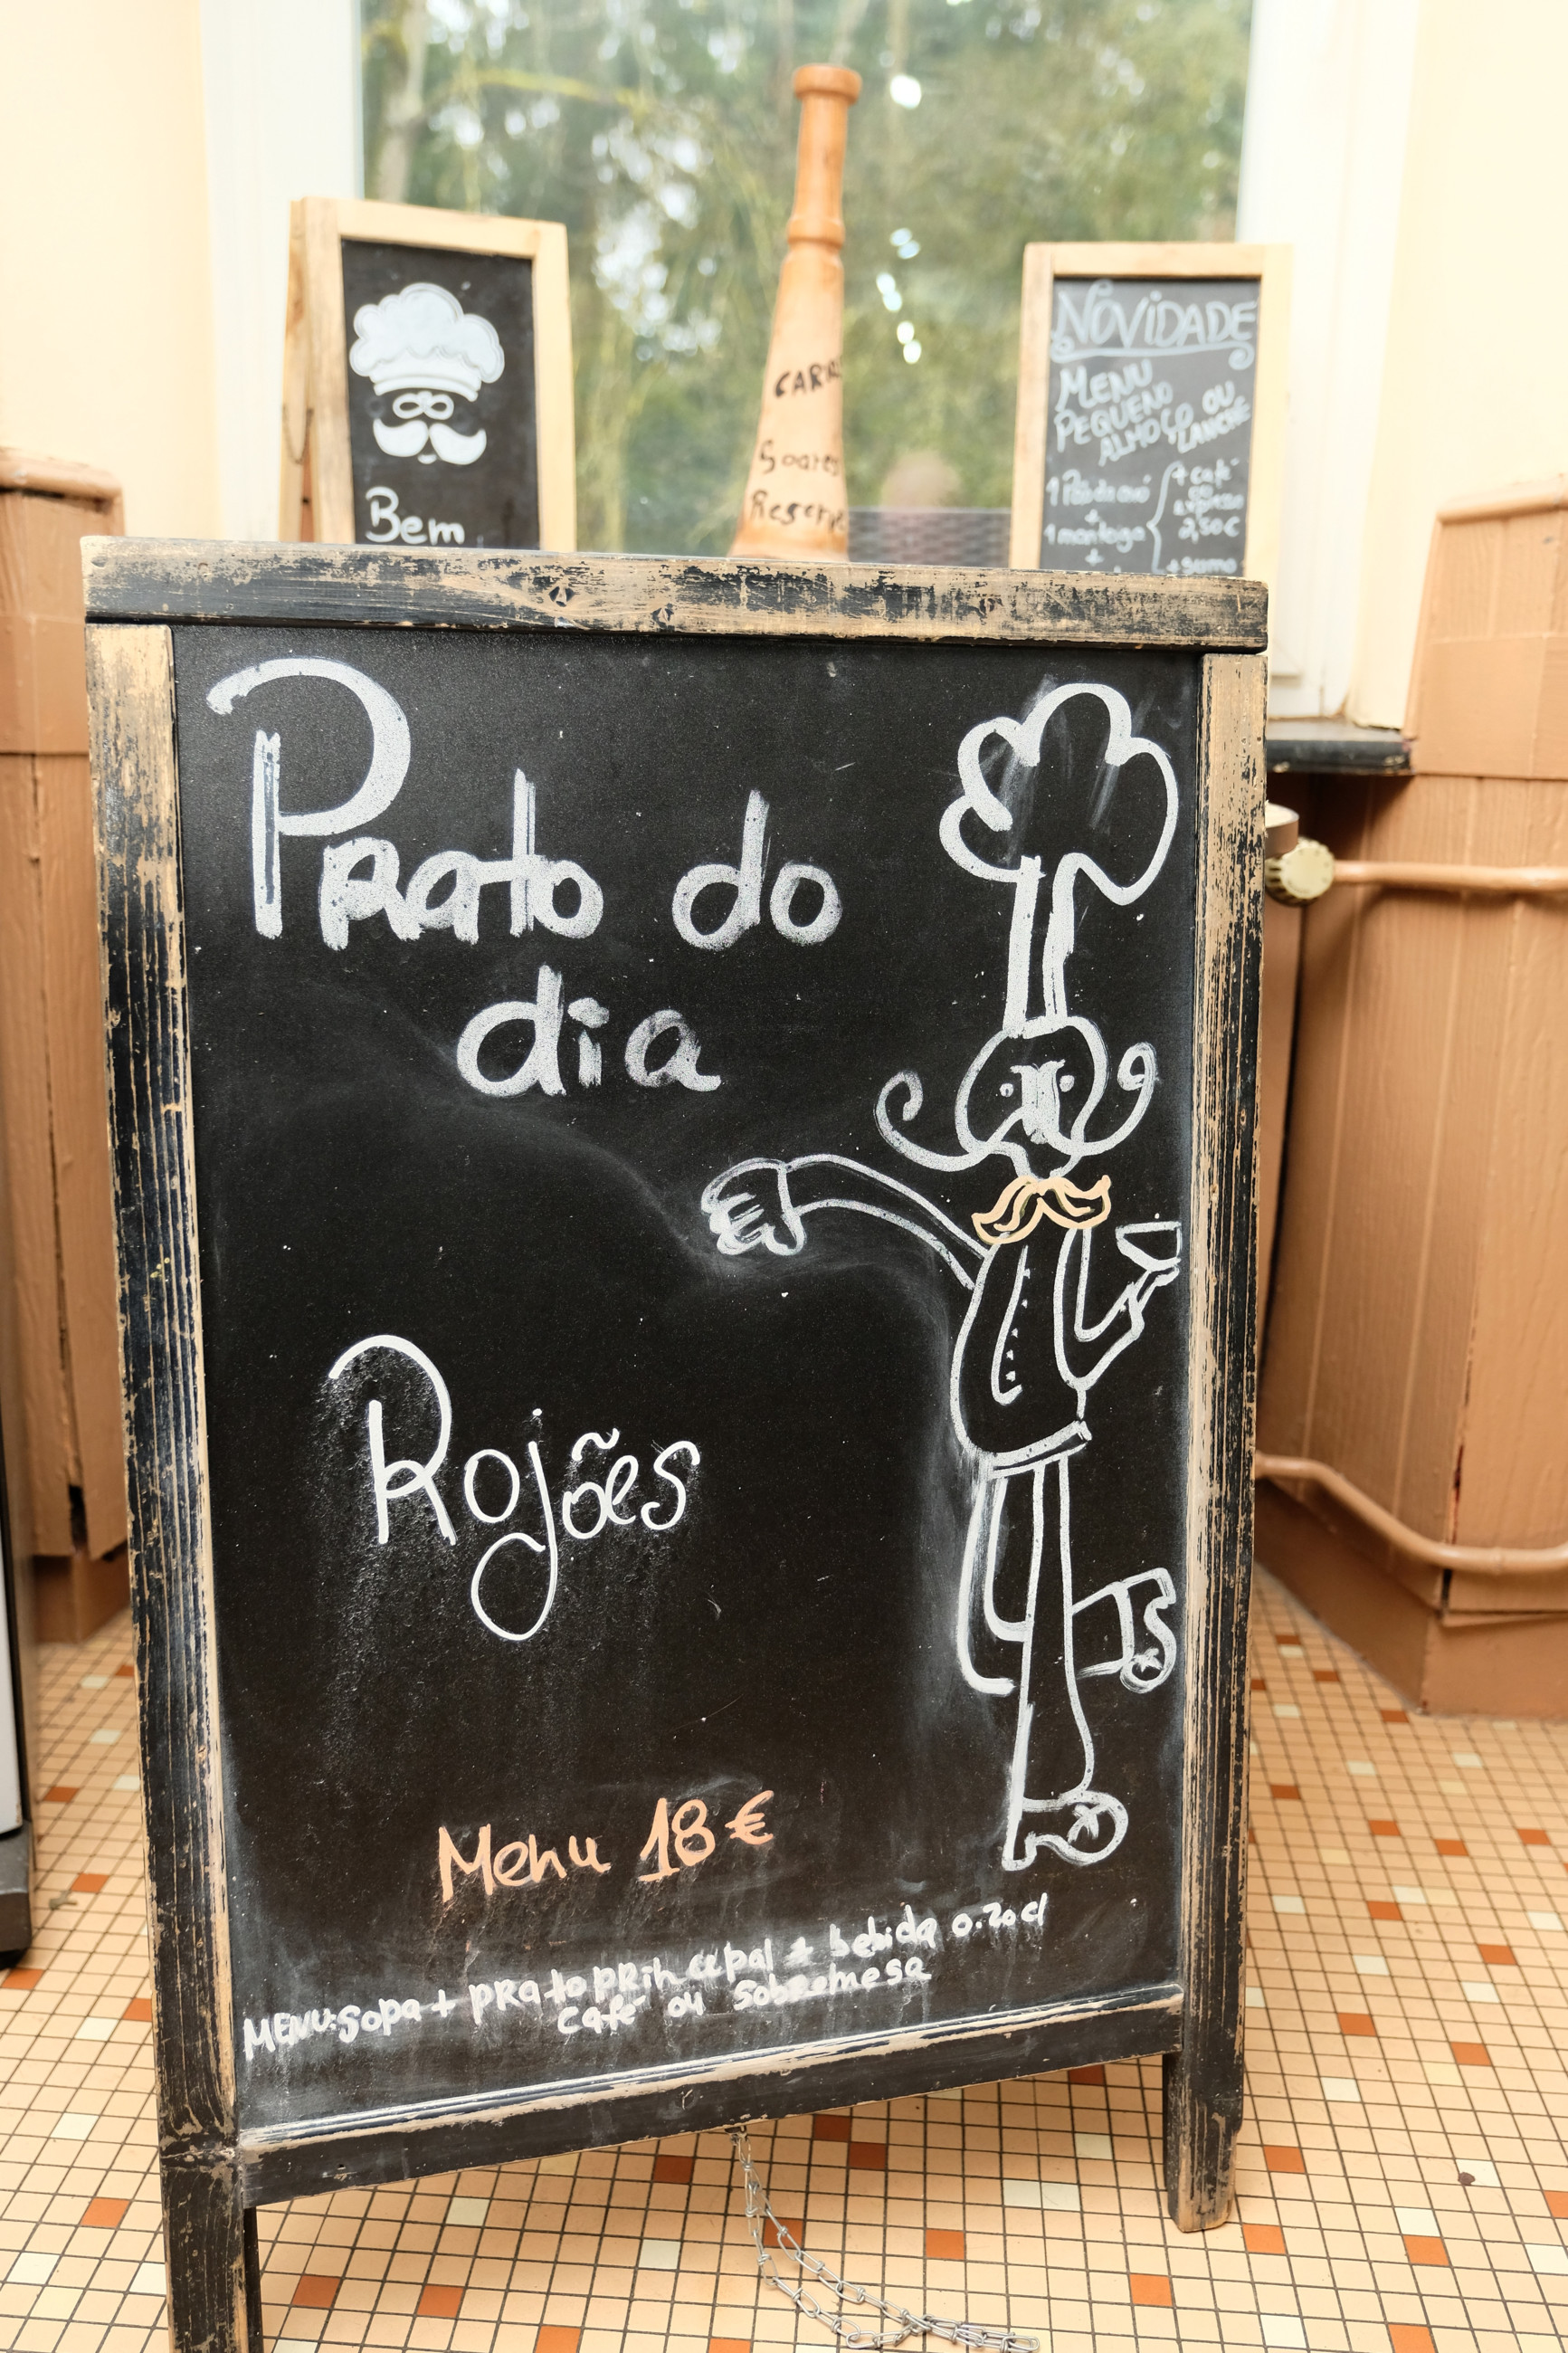 Bem
CARR
Soares
Reserve
NOVIDADE
MENU
PEQUENO
ALMOÇO OU
LANCHE
1 Pão de avó
+
1 manteiga
+
+ café
expresso
2,50€
+ sumo
Prato do
dia
Rojões
Menu 18€
MENU: Sopa + prato principal + bebida 0.20cl
Café ou Sobremesa